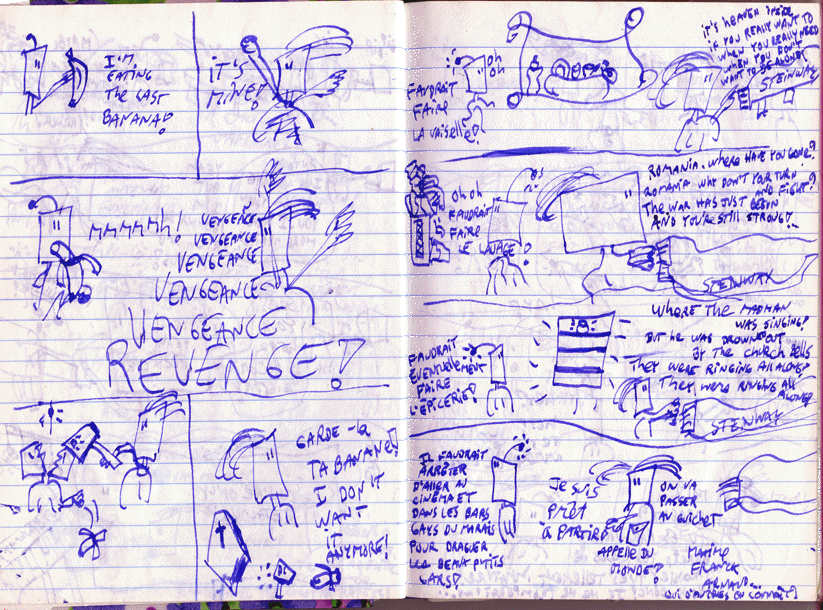 I'M
EATING
THE LAST
BANANA!
IT'S
MINE!
MMMMH!
VENGEANCE
VENGEANCE
VENGEANCE
VENGEANCE
VENGEANCE
REVENGE!
GARDE-LA
TA BANANE!
I DON'T
WANT
IT
ANYMORE!
oh
oh
FAUDRAIT
FAIRE
LA VAISELLE!
IT'S HEAVEN
IF YOU REALLY WANT TO
WHEN YOU REALLY NEED
WHEN YOU DON'T
WANT TO BE ALONE!
STEINWAY
Oh oh
FAUDRAIT
FAIRE
LE
ROMANIA, WHERE HAVE YOU GONE?
ROMANIA WHY DON'T YOU TURN
AND FIGHT?
THE WAR HAS JUST BEGIN
AND YOU'RE STILL STRONG!..
STENWAY
FAUDRAIT
EVENTUELLEMENT
FAIRE
L'EPICERIE!
WHERE THE MADMAN
WAS SINGING!
BUT HE WAS DROWNED OUT
BY THE CHURCH BELLS
THEY WERE RINGING ALL ALONG!
THEY WERE RINGING ALL
ALONG!
STEINWAY
IL FAUDRAIT
ARRÊTER
D'ALLER AU
CINÉMA ET
DANS LES BARS
GAYS DU MARAIS
POUR DRAGUER
LES BEAUX PTITS
GARS!
Je suis
prêt
à partir!
APPELLE DU
MONDE!
ON VA
PASSER
AU GUICHET
MAXIME
FRANCK
ARNAUD...
QUI D'AUTRES ON CONNAIT?